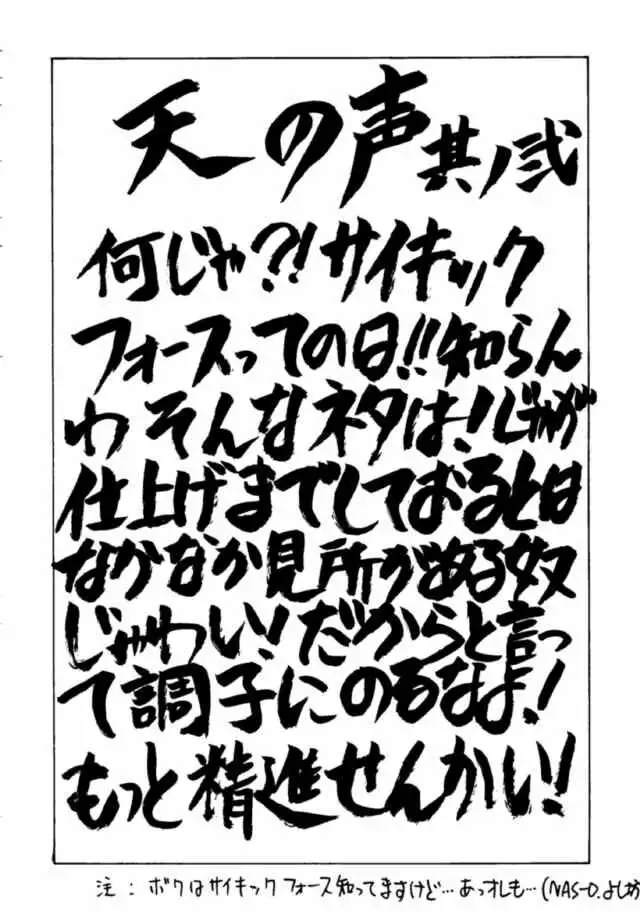 天の声其ノ弐
何じゃ?!サイキック
フォースってのは!!知らん
わそんなネタは!じゃが
仕上げまでしておるとは
なかなか見所がある奴
じゃわい!だからと言っ
て調子にのるなよ!
もっと精進せんかい!
注:ボクはサイキックフォース知ってますけど…あっオレも…(NAS-O.よしお